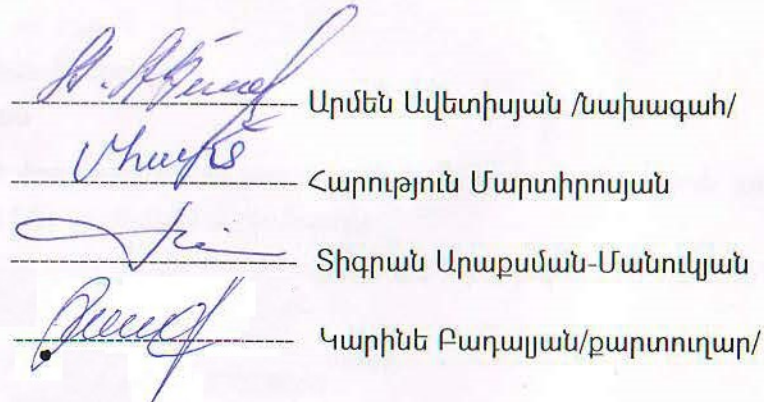 Արմեն Ավետիսյան /նախագահ/
Հարություն Մարտիրոսյան
Տիգրան Արաքսման-Մանուկյան
Կարինե Բադալյան/քարտուղար/